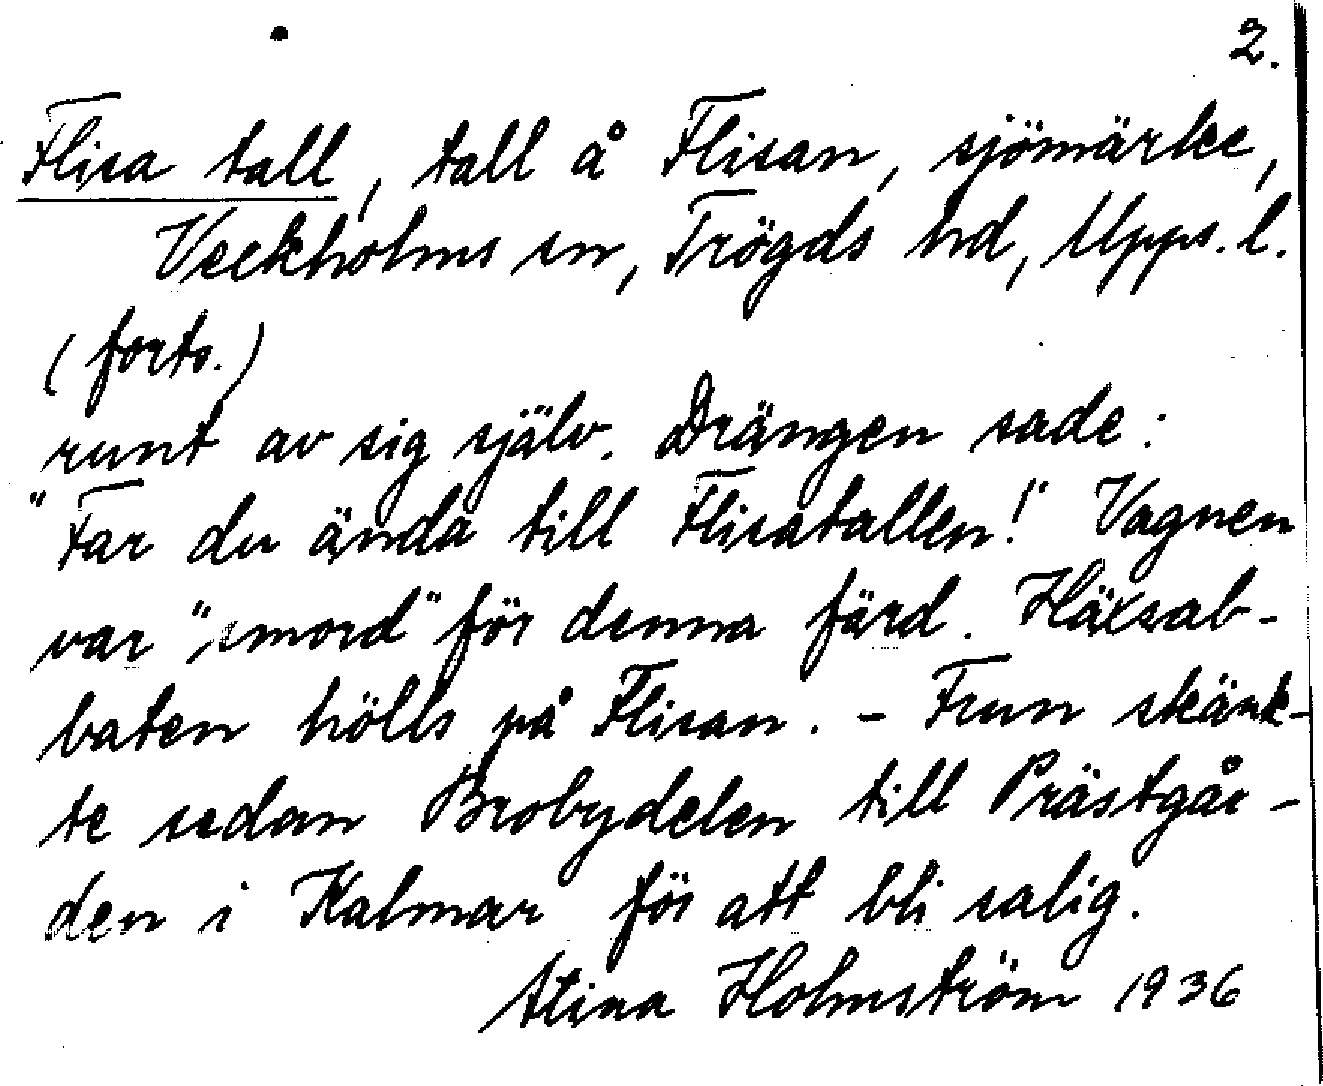 2.
Flisa tall, tall å Flisan, sjömärke,
Veckholms sn, Trögds hd, Upps. l.
(forts.)
runt av sig själv. Drängen sade:
"Far du ända till Flisatallen!" Vagnen
var "smord" för denna färd. Häxsab-
baten hölls på Flisan. – Frun skänk-
te sedan Brobydelen till Prästgår-
den i Kalmar för att bli salig.
Stina Holmström 1936